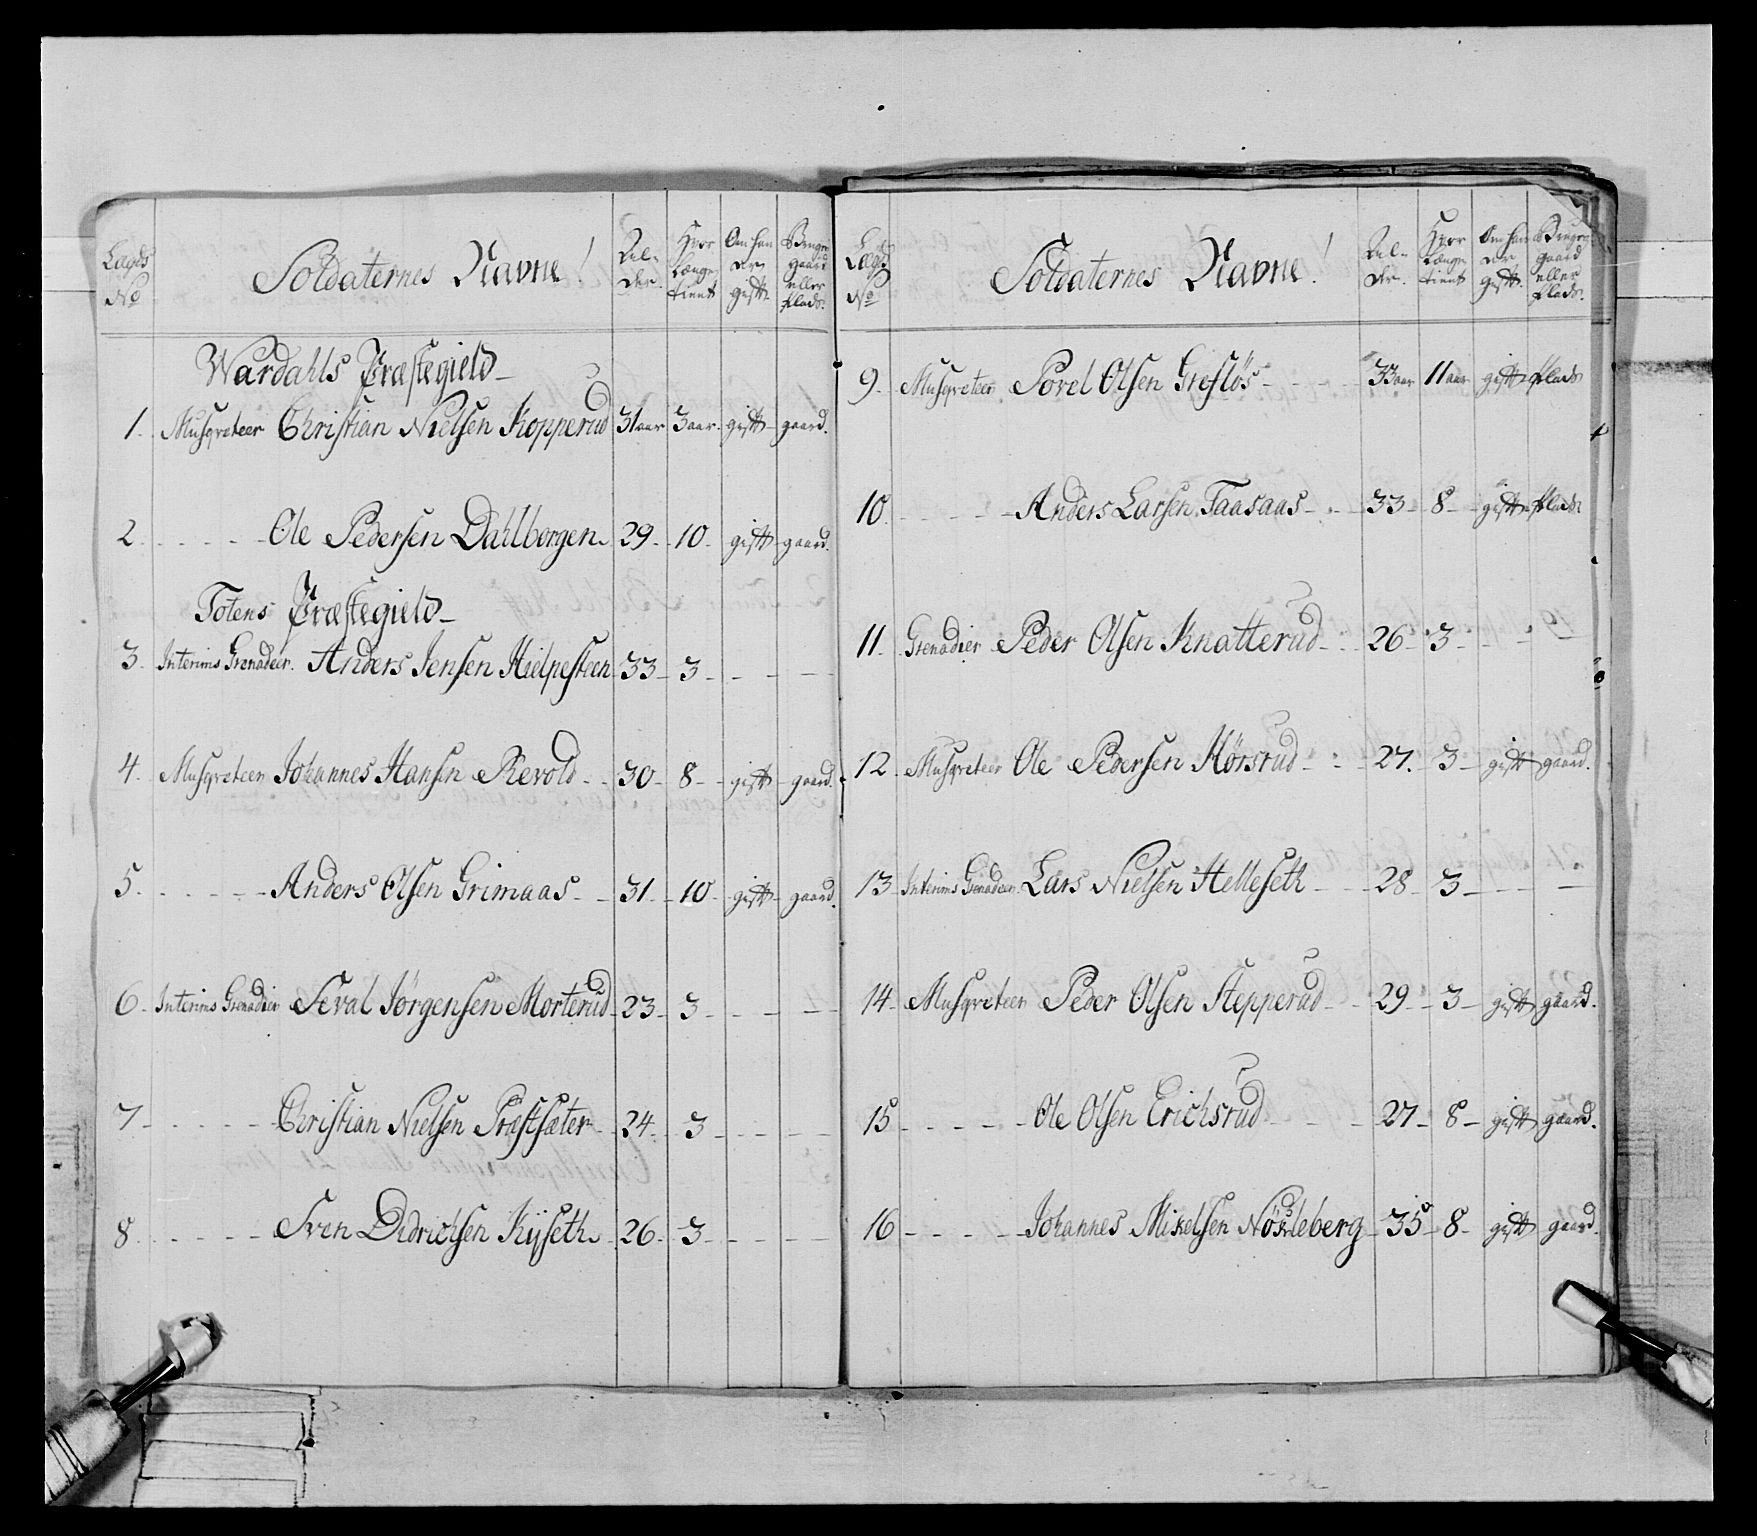 Lægds No | Soldaternes Navne! | Al- der. | Hvor længe tient | Om han er gift. | Bruger gaard eller Plads.
Wardahls Præstegield
1. Musqveteer Christian Nielsen Kopperud 31 aar 3 aar. gift gaard.
2. - - - - Ole Pedersen Dahlborgen. 29 - 10 - gift gaard.
Totens Præstegield
3. Interims Grenadeer. Anders Jensen Hielpesteen 33 - 3 - - - -
4. Musqveteer Johannes Hansen Revold - 30 - 8 - gift gaard.
5. - - - - Anders Olsen Grimaas - 31 - 10 - gift gaard.
6. Interims Grenadeer Seval Jørgensen Morterud 23 - 3 - - - -
7 - - - - Christian Nielsen Præstsæter - 24 - 3 - - - -
8. - - - - Sven Didrichsen Kyseth - 26 - 3 - - - -
Lægds No | Soldaternes Navne! | Al- der. | Hvor længe tient | Om han er gift. | Bruger gaard eller Plads.
9. Musqveteer Povel Olsen Grefløs - - - 33 aar 11 aar gift Plads
10. - - - - Anders Larsen Taasaas - - 33 - 8 - gift Plads
11. Grenadier Peder Olsen Knatterud - - 26 - 3 - - -
12 Musqveteer Ole Pedersen Hørsrud - - 27. - 3 - gift gaard.
13 Interims Grenadeer Lars Nielsen Helleseth - - 28 - 3 - - - -
14. Musqveteer Peder Olsen Stepperud - - 29 - 3 - gift gaard.
15 - - - - Ole Olsen Erichsrud - - 27 - 8 - gift gaard.
16 - - - - Johannes Mikelsen Nøsleberg - 35 - 8 - gift gaard.